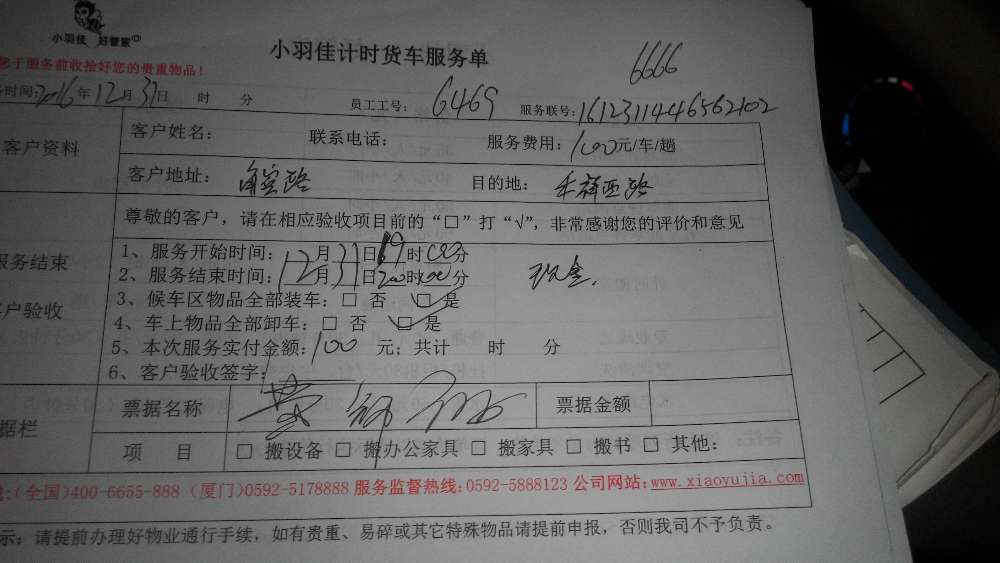 小羽佳 好管家
小羽佳计时货车服务单
6666
您于服务前收拾好您的贵重物品！
务时间：2016年12月31日 时 分 员工工号：6469 服务联号：1612311446562102
客户资料
客户姓名： 联系电话： 服务费用：100元/车/趟
客户地址： 目的地：
尊敬的客户，请在相应验收项目前的“□”打“√”，非常感谢您的评价和意见
服务结束
客户验收
1、服务开始时间：12月31日19时00分
2、服务结束时间：12月31日20时00分 现金.
3、候车区物品全部装车：□ 否 ☑ 是
4、车上物品全部卸车：□ 否 ☑ 是
5、本次服务实付金额：100 元；共计 时 分
6、客户验收签字：
据栏
票据名称 票据金额
项 目 □ 搬设备 □ 搬办公家具 □ 搬家具 □ 搬书 □ 其他：
线:(全国)400-6655-888 (厦门)0592-5178888 服务监督热线:0592-5888123 公司网站:www.xiaoyujia.com
示：请提前办理好物业通行手续，如有贵重、易碎或其它特殊物品请提前申报，否则我司不予负责。